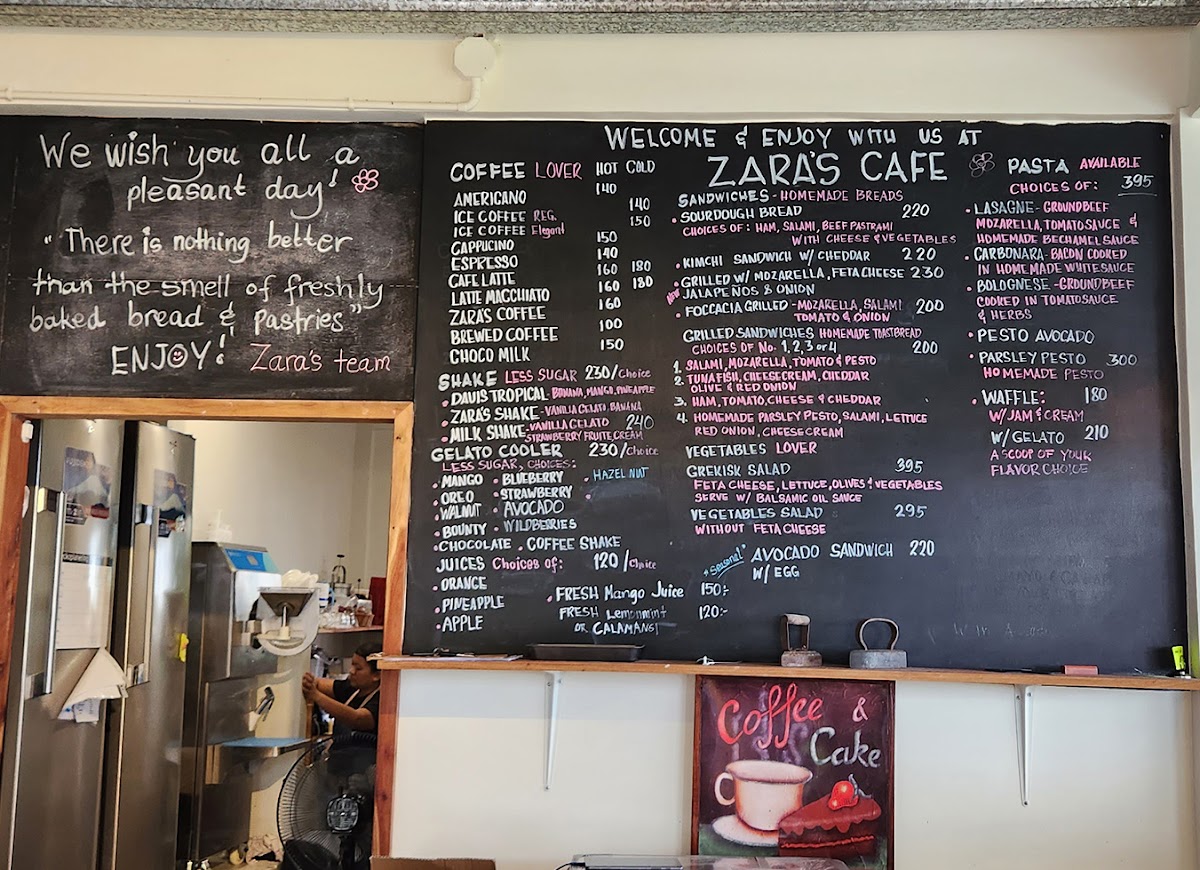 We wish you all a
pleasant day!
"There is nothing better
than the smell of freshly
baked bread & Pastries"
ENJOY! Zara's team
WELCOME & ENJOY WITH US AT
ZARA'S CAFE
COFFEE LOVER HOT COLD
AMERICANO 140
ICE COFFEE REG. 140
ICE COFFEE Elegant 150
CAPPUCINO 150
ESPRESSO 140
CAFE LATTE 160 180
LATTE MACCHIATO 160 180
ZARA'S COFFEE 160
BREWED COFFEE 100
CHOCO MILK 150
SHAKE LESS SUGAR 230/Choice
DAVIS TROPICAL-BANANA, MANGO, PINEAPPLE
ZARA'S SHAKE-VANILIA GELATO, BANANA
MILK SHAKE-VANILLA GELATO 240
STRAWBERRY FRUITE CREAM
GELATO COOLER 230/Choice
LESS SUGAR, CHOICES:
MANGO • BLUEBERRY • HAZELNUT
OREO • STRAWBERRY
WALNUT • AVOCADO
BOUNTY • WILDBERRIES
CHOCOLATE • COFFEE SHAKE
JUICES Choices of: 120/Choice
ORANGE
PINEAPPLE
APPLE
FRESH Mango Juice 150:-
FRESH Lemonmint 120:-
OR CALAMANSI
SANDWICHES - HOMEMADE BREADS
SOURDOUGH BREAD 220
CHOICES OF: HAM, SALAMI, BEEF PASTRAMI
WITH CHEESE & VEGETABLES
KIMCHI SANDWICH W/ CHEDDAR 220
GRILLED W/ MOZARELLA, FETA CHEESE 230
NEW JALAPEÑOS & ONION
FOCCACIA GRILLED - MOZARELLA, SALAMI 200
TOMATO & ONION
GRILLED SANDWICHES HOMEMADE TOASTBREAD
CHOICES OF No. 1, 2, 3 or 4 200
1. SALAMI, MOZARELLA, TOMATO & PESTO
2. TUNAFISH, CHEESECREAM, CHEDDAR
OLIVE & RED ONION
3. HAM, TOMATO, CHEESE & CHEDDAR
4. HOMEMADE PARSLEY PESTO, SALAMI, LETTUCE
RED ONION, CHEESECREAM
VEGETABLES LOVER
GREKISK SALAD 395
FETA CHEESE, LETTUCE, OLIVES & VEGETABLES
SERVE W/ BALSAMIC OIL SAUCE
VEGETABLES SALAD 295
WITHOUT FETA CHEESE
"Seasonal" AVOCADO SANDWICH 220
W/ EGG
PASTA AVAILABLE
CHOICES OF: 395
LASAGNE - GROUNDBEEF
MOZARELLA, TOMATO SAUCE &
HOMEMADE BECHAMEL SAUCE
CARBONARA - BACON COOKED
IN HOMEMADE WHITE SAUCE
BOLOGNESE - GROUNDBEEF
COOKED IN TOMATO SAUCE
& HERBS
PESTO AVOCADO
PARSLEY PESTO 300
HOMEMADE PESTO
WAFFLE: 180
W/ JAM & CREAM
W/ GELATO 210
A SCOOP OF YOUR
FLAVOR CHOICE
Coffee &
Cake